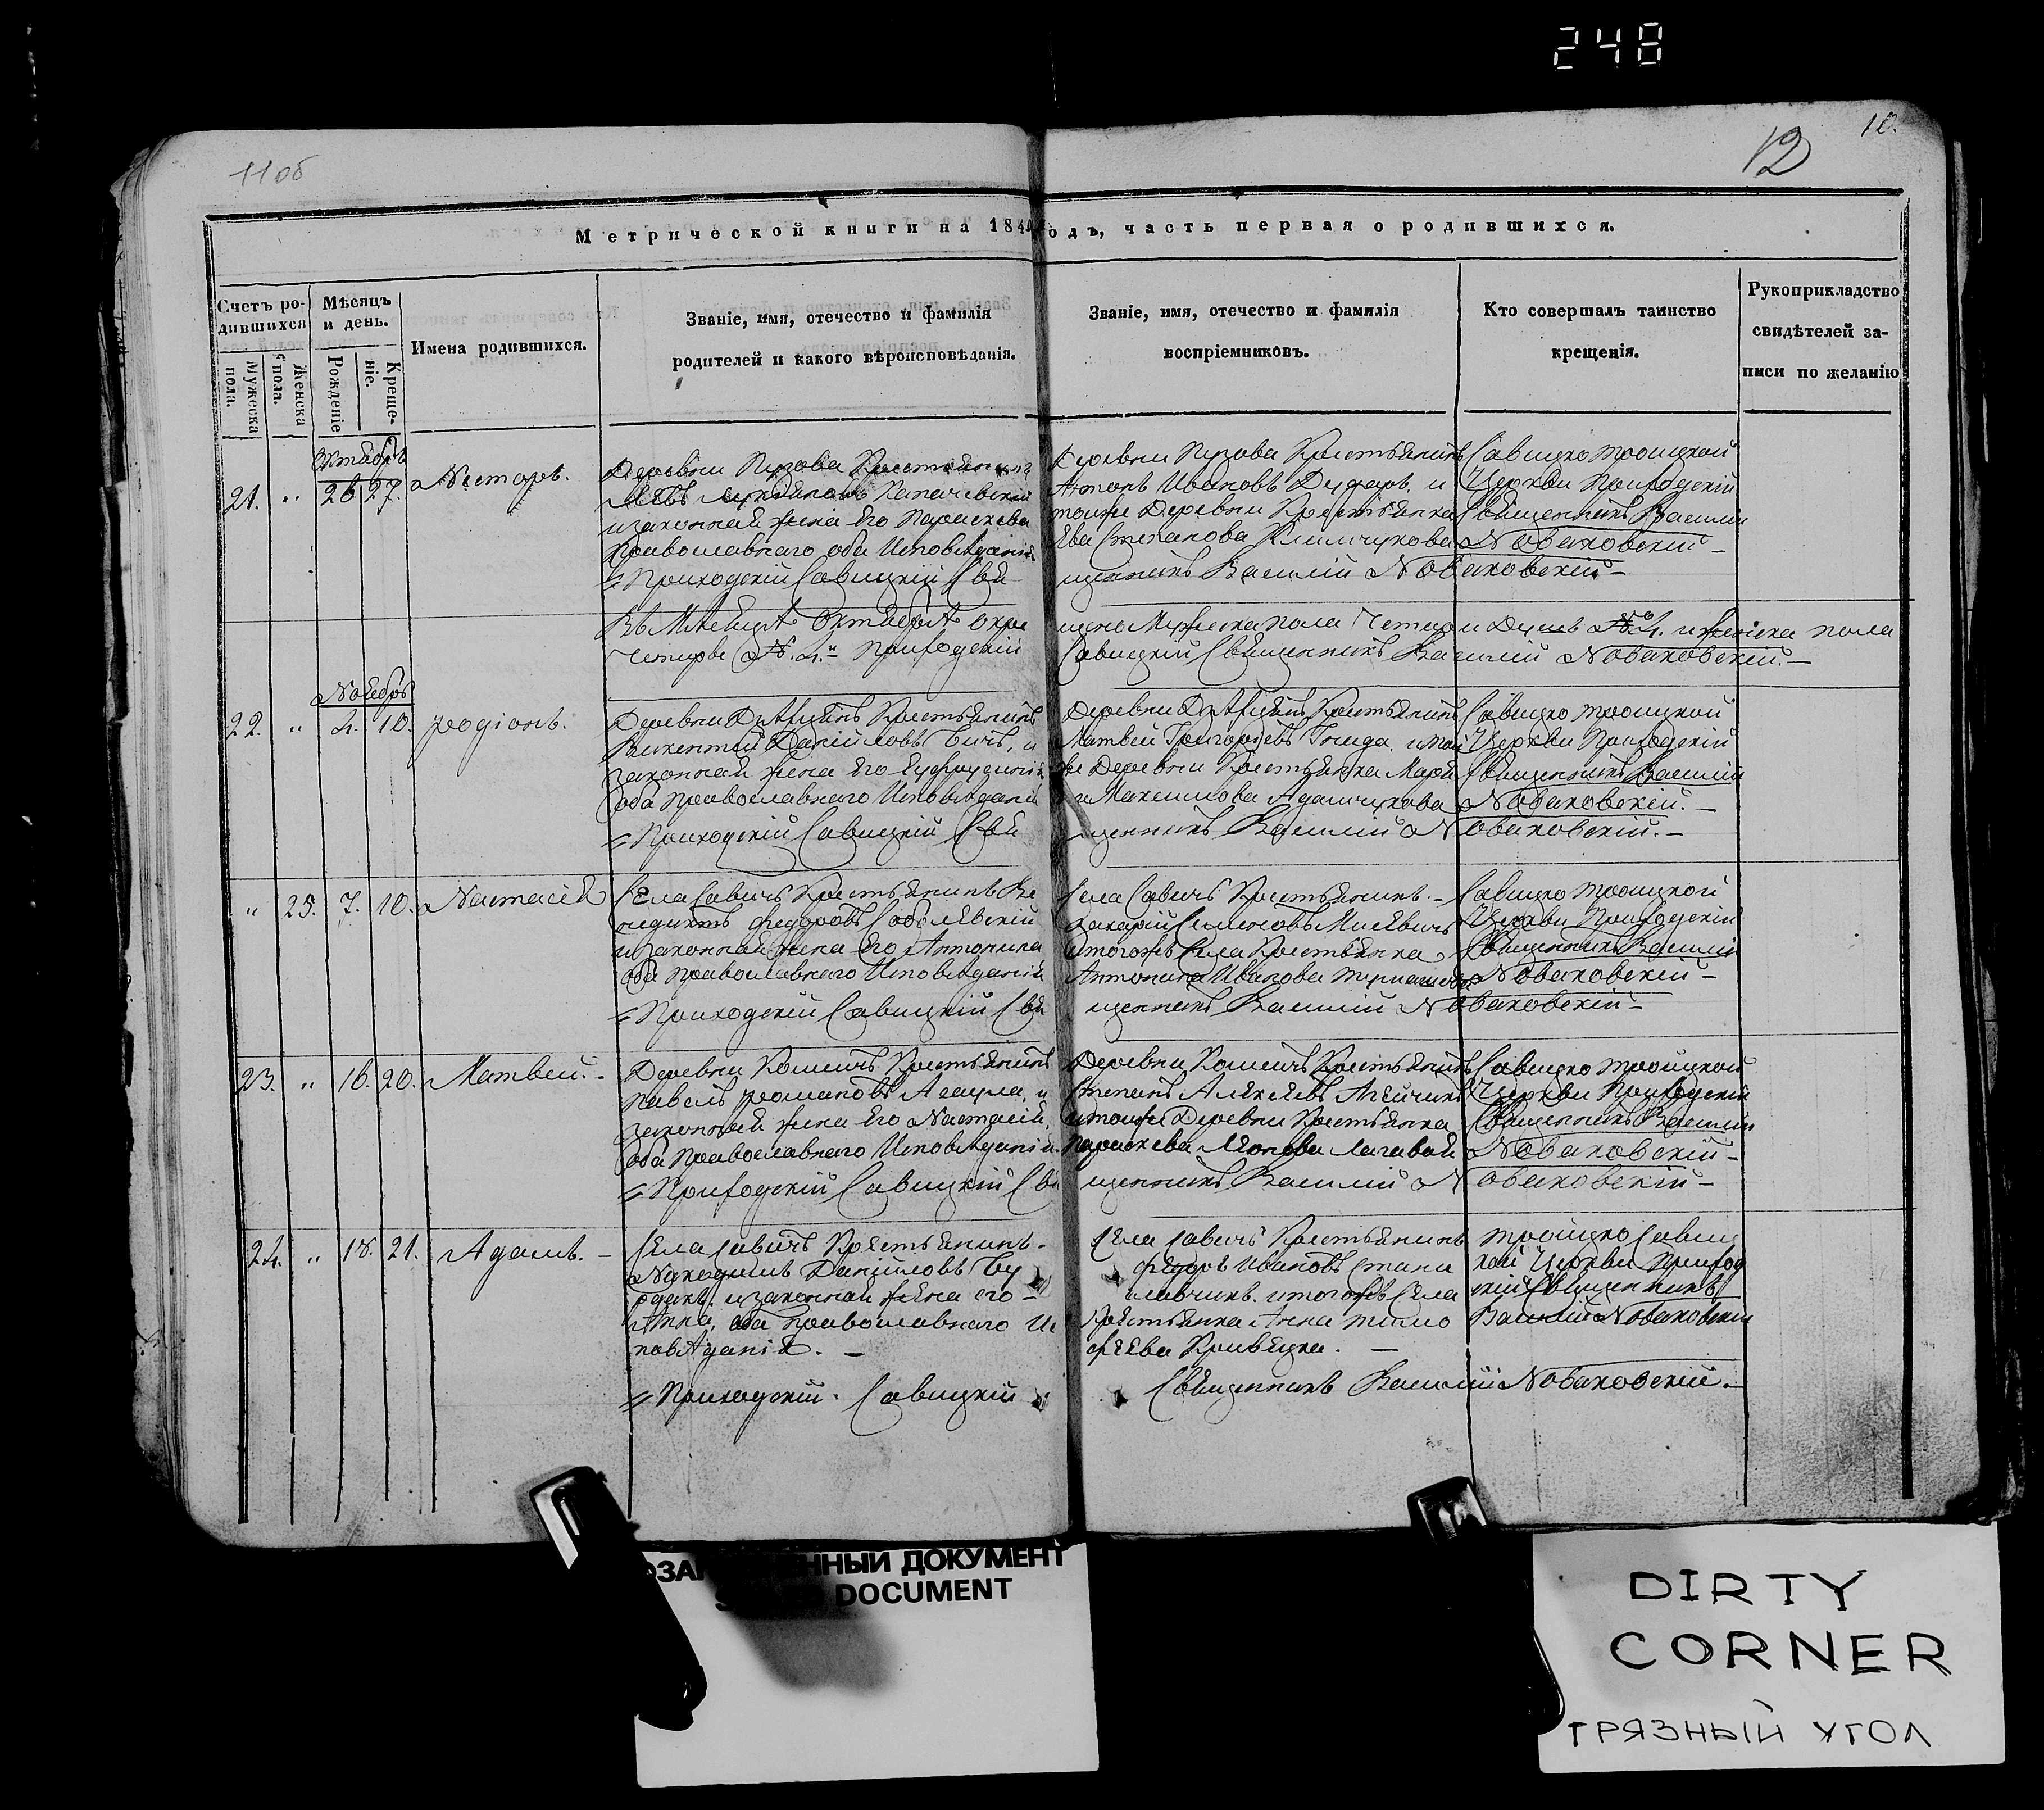 248
11об
12
10.
Метрической книги на 184 одъ, часть первая о родившихся.
Счетъ родившихся
Мужеска пола.
Женска пола.
Мѣсяцъ и день.
Рожденіе
Крещеніе.
Имена родившихся.
Званіе, имя, отечество и фамилія
родителей и какого вѣроисповѣданія.
Званіе, имя, отечество и фамилія
воспріемниковъ.
Кто совершалъ таинство
крещенія.
Рукоприкладство
свидѣтелей за-
писи по желанію
Октябрь
21. " 26 27. Несторъ.
Деревни Пузова Крестьянинъ
и законная жена Его Параскева
Православнаго оба Исповѣданія
Приходскій Савицкій Свя
Деревни Пузова Крестьянинъ
Антонъ Ивановъ Дударь. и
тойже Деревни Крестьянка
Ева Степанова Климчукова
щенникъ Василій Новаковскій
Савицко Троицкой
Церкви Приходскій
Священникъ Василій
Новаковскій
Въ Мѣсяцѣ Октябрѣ окре
Четыре №. 4." Приходскій
щено Мужеска пола Четыри Душъ №4. и женска пола
Савицкій Священникъ Василій Новаковскій.
Ноябрь
22. " 4. 10. Родіонъ.
Викентій Даніиловъ Бичь, и
законная жена Его Еуфрузинія
оба Православнаго Исповѣданія
Приходскій Савицкій Свя
Матвей Григорьевъ Гнида. и той
же Деревни Крестьянка Марі
я Максимова Адамчукова
щенникъ Василій Новаковскій.
Савицко Троицкой
Церкви Приходскій
Священникъ Василій
Новаковскій.
" 25. 7. 10. Настасія
Села Савичъ Крестьянинъ Ве
недиктъ Федоровъ Соболевскій
и законная жена Его Антонина
оба Православнаго Исповѣданія
Приходскій Савицкій Свя
Села Савичъ Крестьянинъ.
Захарій Семеновъ Мисевичь
и тогожъ Села Крестьянка
Антонина Иванова
щенникъ Василій Новаковскій
Савицко Троицкой
Церкви Приходскій
Священникъ Василій
Новаковскій
23. " 16. 20. Матвей.
Деревни Кошичъ Крестьянинъ
Павелъ Романовъ Асаула, и
законная жена Его Настасія,
оба Православнаго Исповѣданія.
Приходскій Савицкій Свя
Деревни Кошичъ Крестьянинъ
Степанъ Алексеевъ
и тойже Деревни Крестьянка
Параскева Леонова Лагавая
щенникъ Василій Новаковскій
Савицко Троицкой
Церкви Приходскій
Священникъ Василій
Новаковскій
24. " 18. 21. Адамъ.
Села Савичъ Крестьянинъ.
Никодимъ Даніиловъ Бу
и законная жена его
Анна, оба православнаго Ис
повѣданія.
Приходскій Савицкій
Села Савичъ Крестьянинъ
Федоръ Ивановъ Стани
славчикъ. и тогожъ Села
Крестьянка Анна Тимо
феева Кривецка.
Священникъ Василій Новаковскій.
Троицко Савиц
кой Церкви Приход
скій Священникъ
Василій Новаковскій
ННЫЙ ДОКУМЕНТ
DOCUMENT
DIRTY
CORNER
ГРЯЗНЫЙ УГОЛ